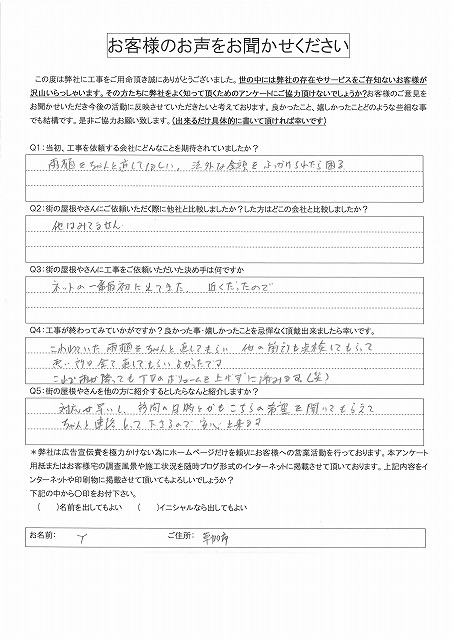 お客様のお声をお聞かせください
この度は弊社に工事をご用命頂き誠にありがとうございました。世の中には弊社の存在やサービスをご存知ないお客様が
沢山いらっしゃいます。その方たちに弊社をよく知って頂くためのアンケートにご協力頂けないでしょうか?お客様のご意見を
お聞かせいただき今後の活動に反映させていただきたいと考えております。良かったこと、嬉しかったことどのような些細な事
でも結構です。是非ご協力お願い致します。(出来るだけ具体的に書いて頂ければ幸いです)
Q1:当初、工事を依頼する会社にどんなことを期待されていましたか?
雨樋をちゃんと直してほしい、法外な金額をふっかけられたら困る
Q2:街の屋根やさんにご依頼いただく際に他社と比較しましたか?した方はどこの会社と比較しましたか?
他はみてません
Q3:街の屋根やさんに工事をご依頼いただいた決め手は何ですか
ネットの一番最初に出てきた、近くだったので
Q4:工事が終わってみていかがですか?良かった事・嬉しかったことを忌憚なく頂戴出来ましたら幸いです。
これていた雨樋をちゃんと直してもらい 他の箇所も点検してもらって
悪い 全て直してもらいよかったです
雨が降っても TVのボリュームを上げずに済みます(笑)
Q5:街の屋根やさんを他の方に紹介するとしたらなんと紹介しますか?
対応は早いし、訪問の日時とかもこちらの希望を聞いてもらえて
ちゃんと連絡して下さるので 安心出来ます
*弊社は広告宣伝費を極力かけない為にホームページだけを頼りにお客様への営業活動を行っております。本アンケート
用紙またはお客様宅の調査風景や施工状況を随時ブログ形式のインターネットに掲載させて頂いております。上記内容をイ
ンターネットや印刷物に掲載させて頂いてもよろしいでしょうか?
下記の中から〇印をお付下さい。
( )名前を出してもよい ( )イニシャルなら出してもよい
お名前: Y ご住所: 草加市